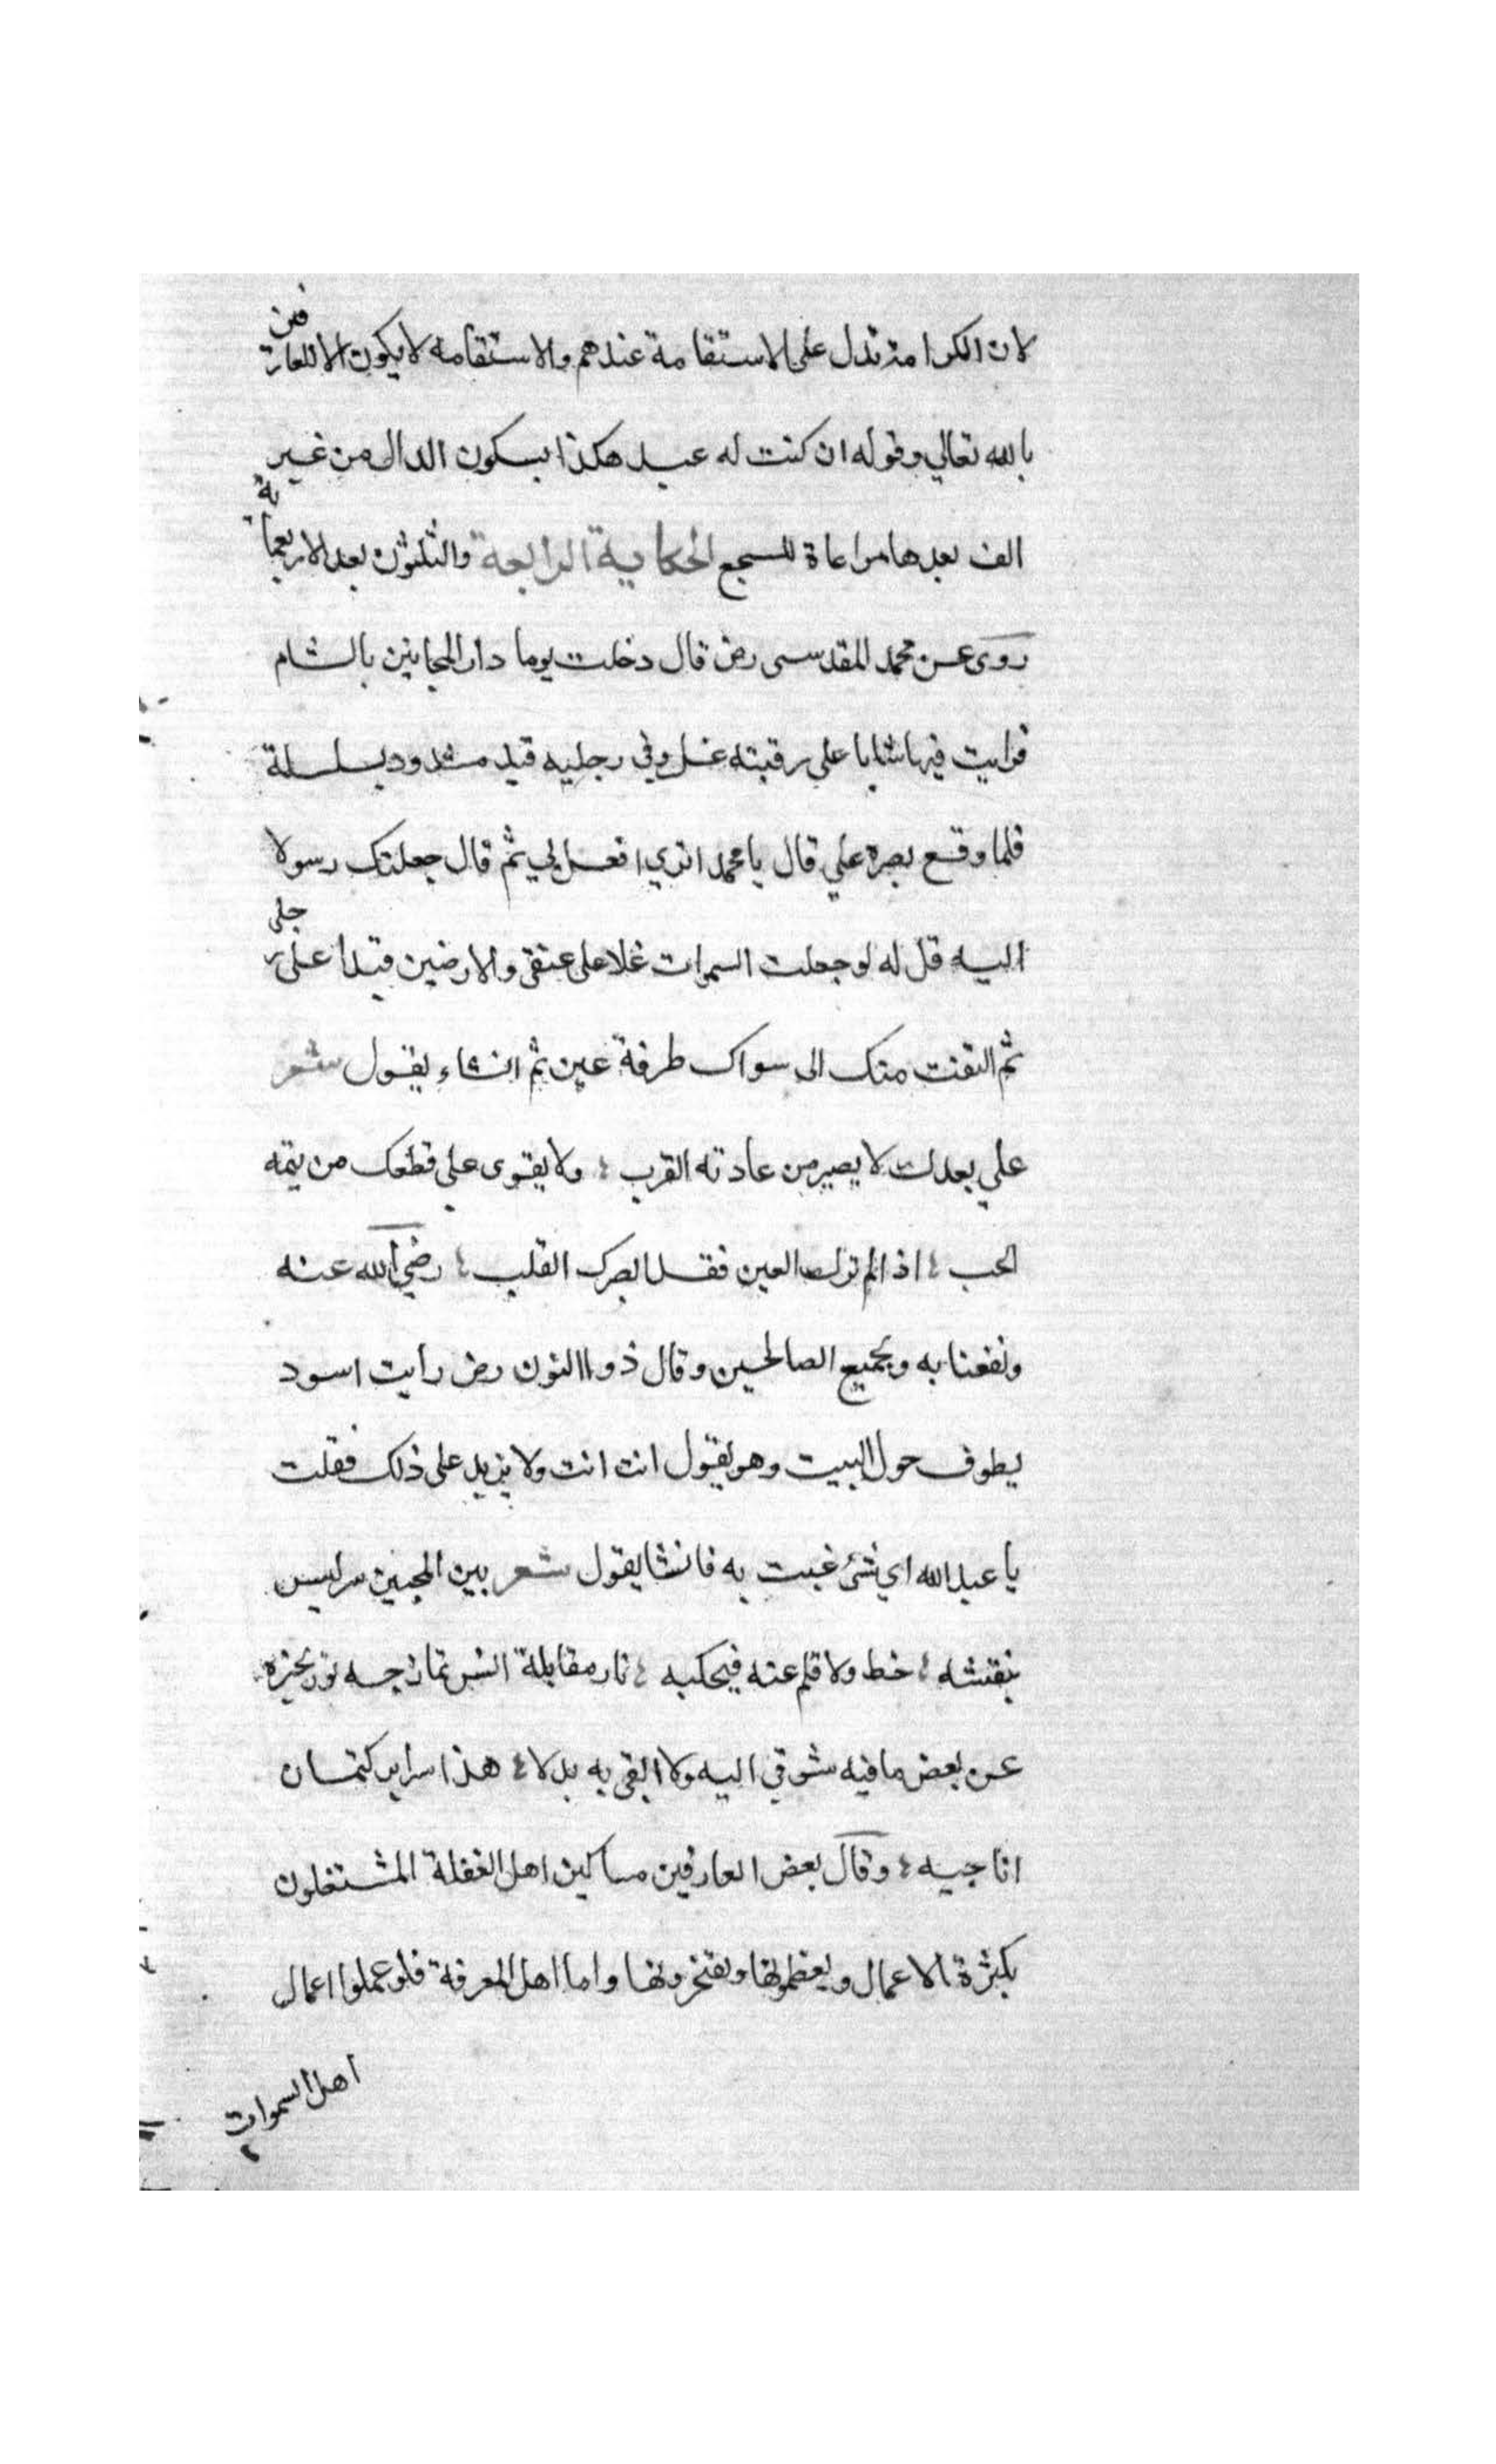 لان الكرامة تدل على الاستقامة عندهم والاستقامة لا يكون الا للعارفين
بالله تعالي وقوله ان كنت له عبد هكذا بسكون الدال من غير
الف بعدها مراعاة للسجع الحكاية الرابعة والثلثون بعد الاربعمأية
روى عن محمد المقدسى رض قال دخلت يوما دار المجانين بالشام
فرايت فيها شابا على رقبته غل وفي رجليه قيد مشدود بسلسلة
فلما وقع بصره علي قال يا محمد اتري ا فعل بي ثم قال جعلتك رسولا
اليه قل له لو جعلت السموات غلا على عنقى والارضين قيدا على رجلى
ثم التفت منك الى سواك طرفة عين ثم انشاء يقول شعر
على بعدك لا يصبر من عادته القرب ؛ ولا يقوى على قطعك من يتمه
الحب ؛ اذ الم ترك العين فقد ابصرك القلب ؛ رضي الله عنه
ونفعنا به وبجميع الصالحين وقال ذو االنون رض رأيت اسود
يطوف حول البيت وهو يقول انت انت ولا يزيد على ذلك فقلت
يا عبد الله اي شئ عنيت به فانشا يقول شعر بين المحبين سر ليس
يفشه ؛ خط ولا قلم عنه فيحكيه ؛ نار مقابلة انس تمازجه نور يخبره
عن بعض ما فيه شوقي اليه ولا ابقى به بدلا ؛ هذا سراير كتمان
اناجيه ؛ وقال بعض العارفين مساكين اهل الغفلة المشتغلون
بكثرة الاعمال ويعظمونها ويفتخرونها واما اهل المعرفة فلو عملوا اعمال
اهل السموات